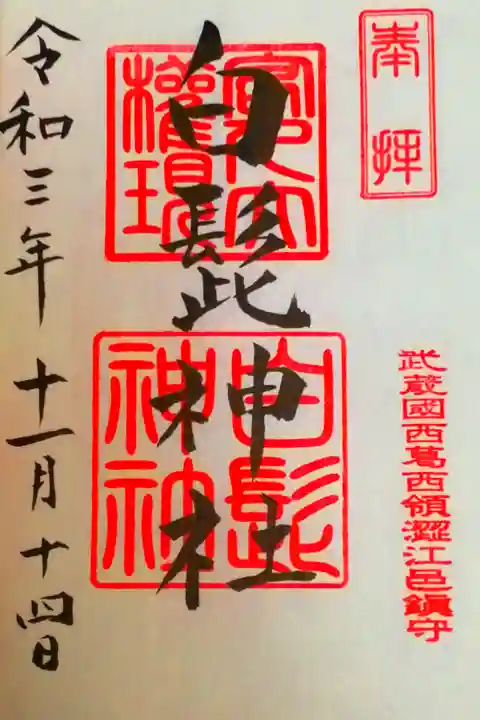 奉拝
武蔵國西葛西領澀江邑鎮守
白髭神社
權現
白髭
神社
令和三年十一月十四日